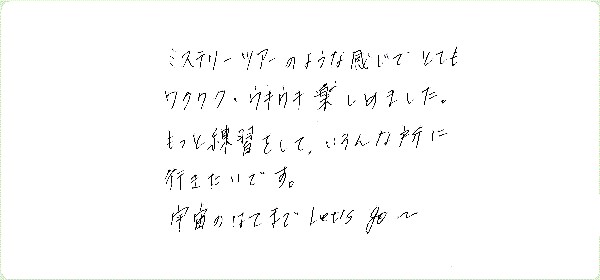 ミステリーツアーのような感じで とても
ワクワク・ウキウキ 楽しめました。
もっと練習をして、いろんな所に
行きたいです。
宇宙のはてまで Let's go ~